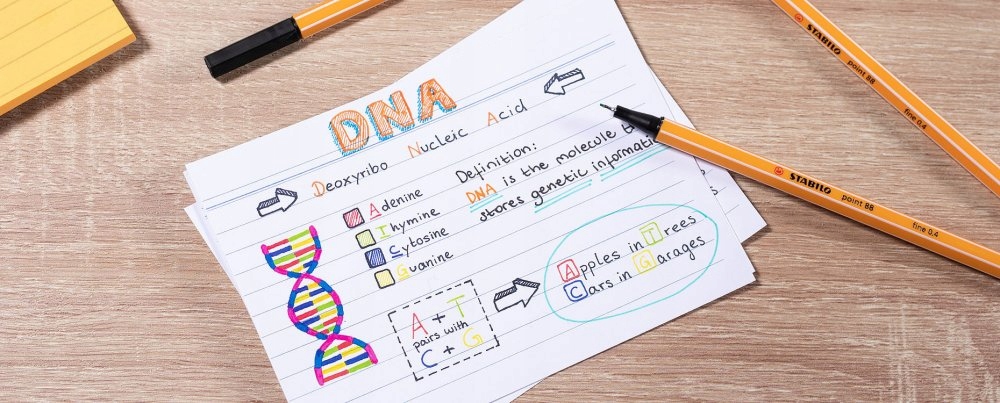 DNA
Deoxyribo Nucleic Acid
Adenine
Thymine
Cytosine
Guanine
Definition:
DNA is the molecule
stores genetic informati
A + T
pairs with
C + G
Apples in Trees
Cars in Garages
STABILO point 88 fine 0.4
STABILO point 88 fine 0.4